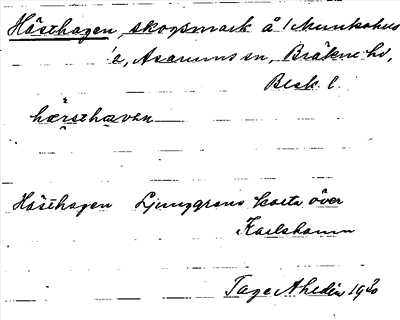 Hästhagen, skogsmark å Munkahus
ä, Asarums sn, Bräkne hd,
Blek. l.
hærsthaven
Hästhagen Ljunggrens karta över
Karlshamn
Tage Ahldén 1930